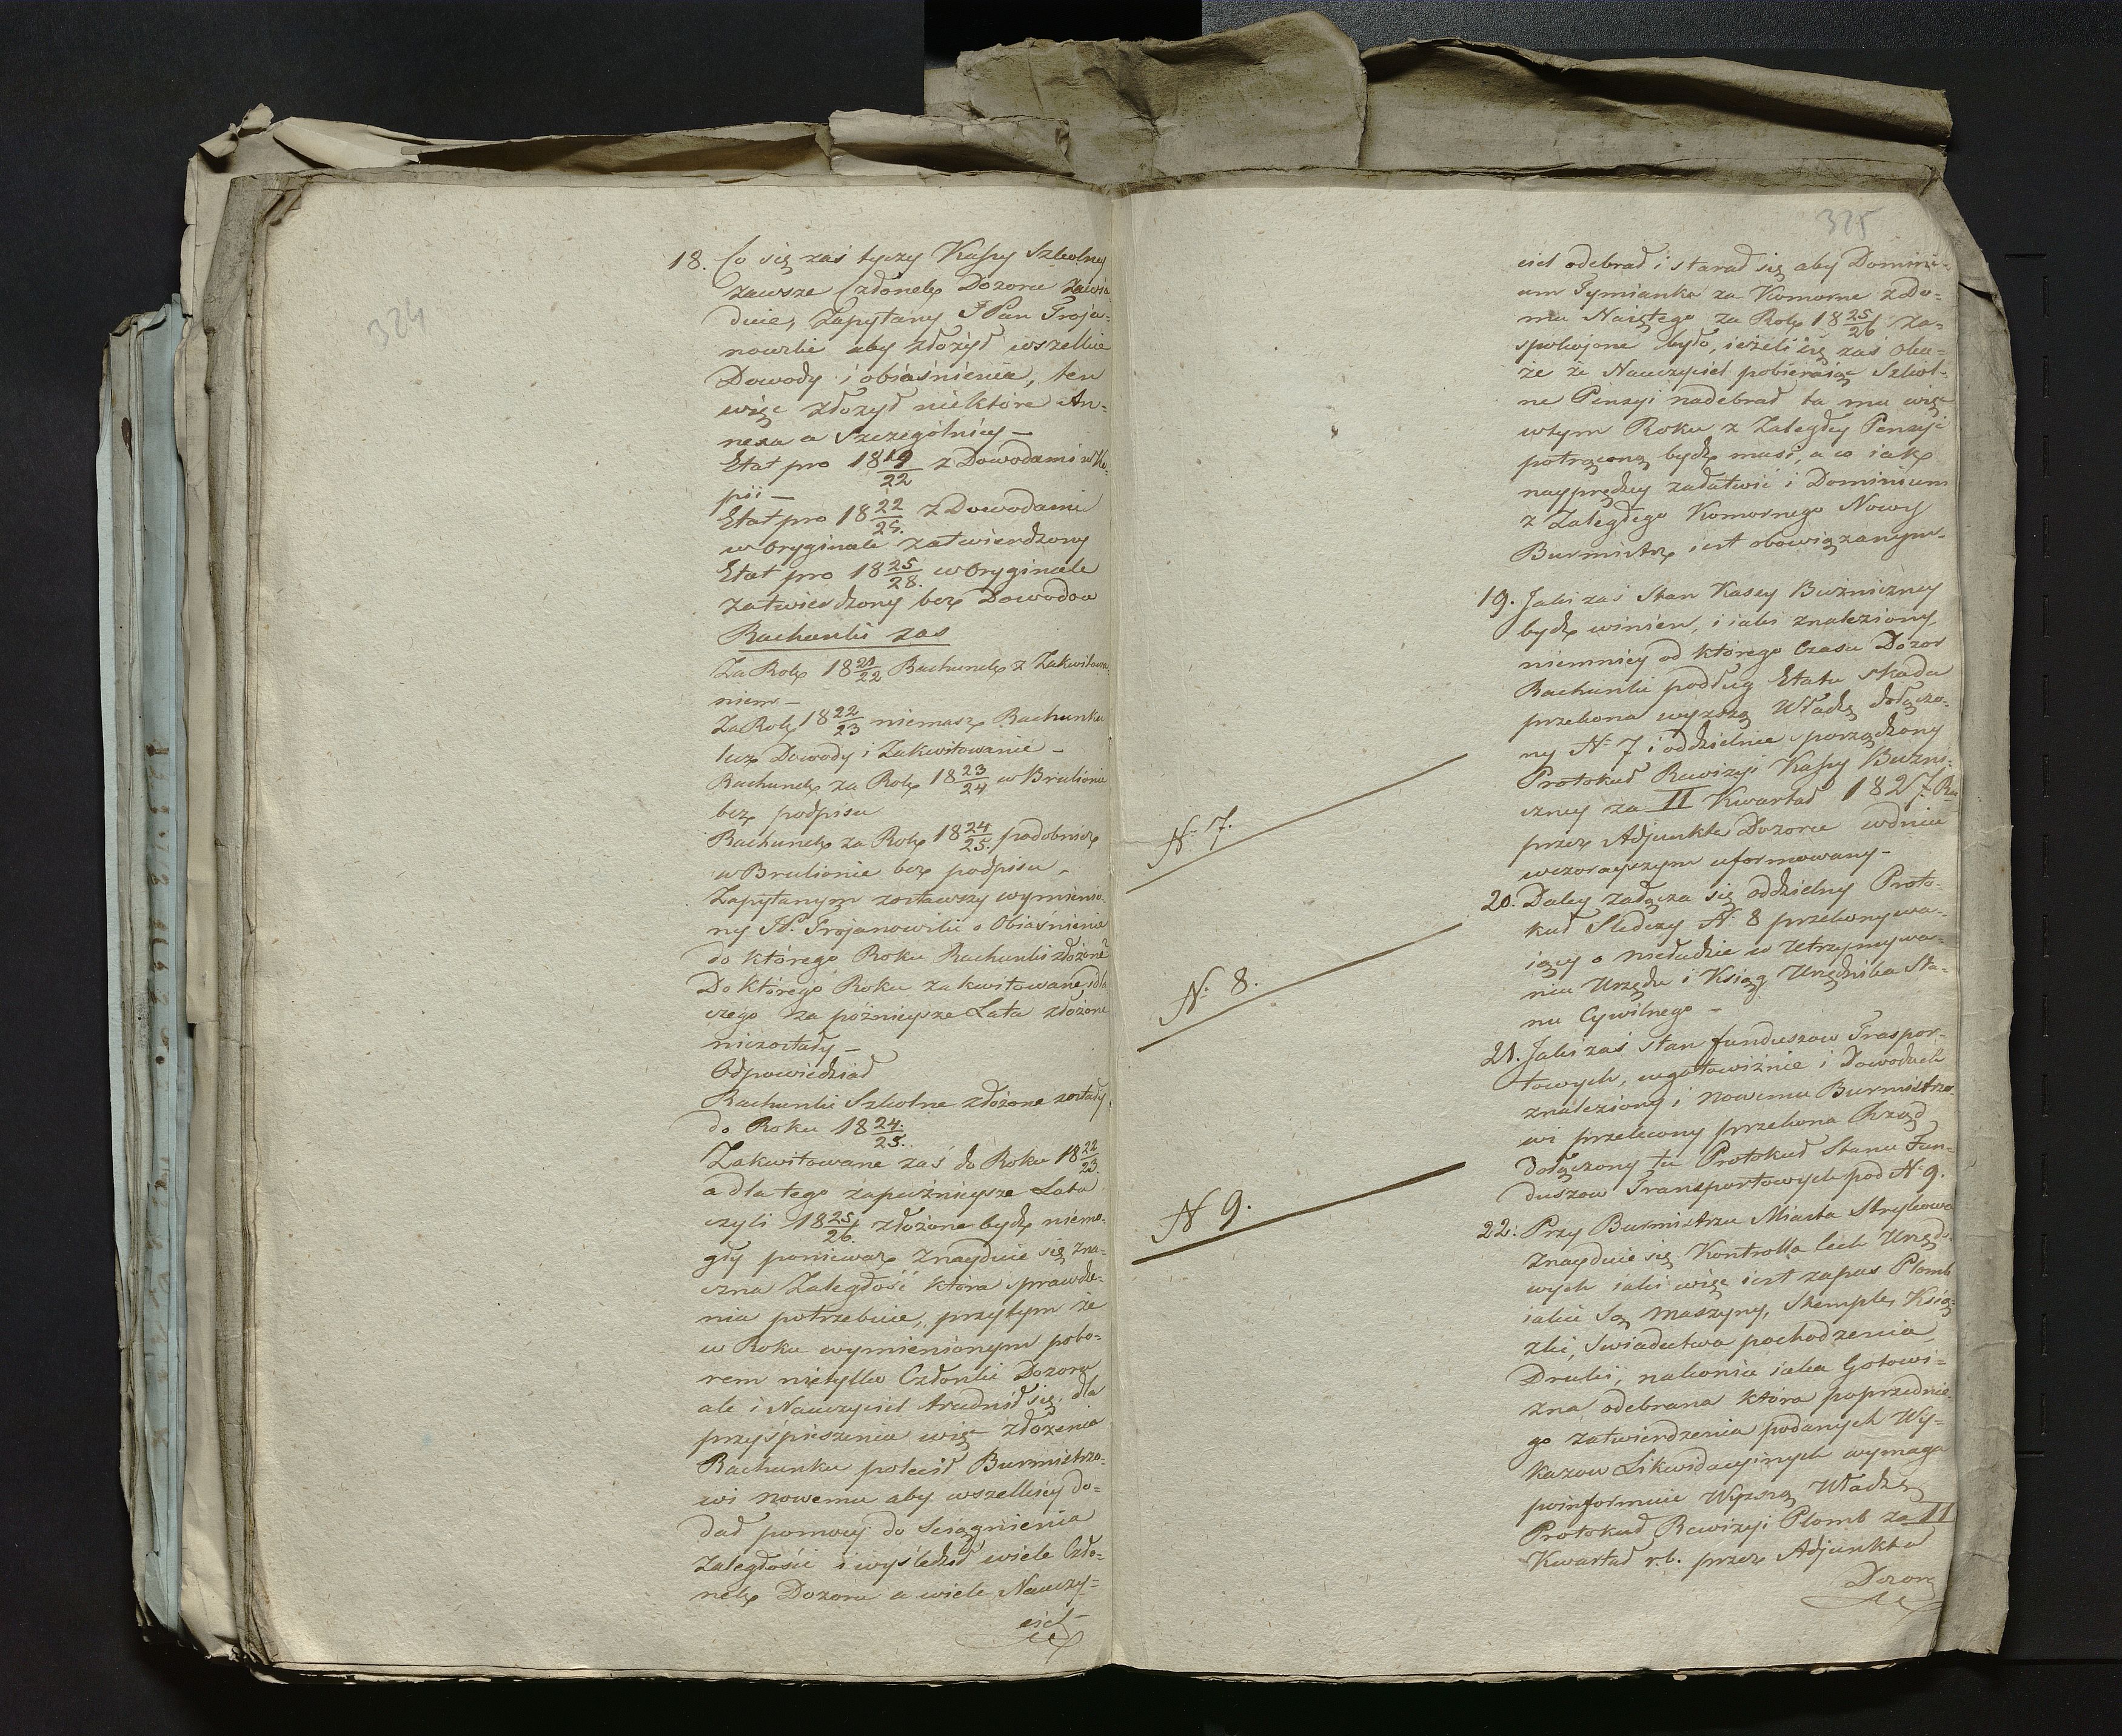 324
18. Co się zaś tyczy Kassy Szkolney
zawsze Członek Dozoru zawia-
duie, Zapytany JPan Troja-
nowski aby złożył wszelkie
Dowody i obiaśnienia, ten
więc złożył niektóre An-
nexa a Szczególniey —
Etat pro 18 19/22 z Dowodami w Ko-
pii —
Etat pro 18 22/25. z Dowodami
w Oryginale zatwierdzony
Etat pro 18 25/28. w Oryginale
zatwierdzony bez Dowodow
Rachunki zas
Za Rok 18 21/22 Rachunek z Zakwitowa-
niem —
Za Rok 18 22/23 niemasz Rachunku
lecz Dowody i Zakwitowanie —
Rachunek za Rok 18 23/24 w Brulionie
bez podpisu
Rachunek za Rok 18 24/25. podobnież
w Brulionie bez podpisu —
Zapytanym zostawszy wymienio-
ny JP. Trojanowski o Obiaśnienie
do którego Roku Rachunki złożone?
Do którego Roku zakwitowane, i dla
czego za późnieysze Lata złożone
niezostały —
Odpowiedział
Rachunki Szkolne złożone zostały
do Roku 18 24/25.
Zakwitowane zaś do Roku 18 22/23.
a dla tego zapóżnieysze Lata
czyli 18 25/26. złożone bydź niemo-
gły ponieważ znayduie się zna-
czna Zaległość która sprawdze-
nia potrzebuie, przytym że
w Roku wymienionym pobo-
rem nietylko Członki Dozoru
ale i Nauczyciel trudnił się, dla
przyśpieszenia więc złożenia
Rachunku polecił Burmistrzo-
wi nowemu aby wszelkiey do-
dał pomocy do Sciągnienia
zaległości i wyśledził wiele Czło-
nek Dozoru a wiele Nauczy-
ciel
325
ciel odebrał i starał się aby Domini-
um Tymianka za Komorne z Do-
mu Naiętego za Rok 18 25/26 za-
spokojone było, ieżeli się zaś oka-
że że Nauczyciel pobieraiąc Szkol-
ne Pensyi nadebrał ta mu więc
w tym Roku z Zaległey Pensyi
potrąconą bydź musi, a co iak
nayprędzey załatwić i Dominium
z Zaległego Komornego Nowy
Burmistrz iest obowiązanym —
19. Jaki zaś Stan Kassy Bużniczney
bydź winien, i iaki znaleziony,
niemniey od którego Czasu Dozor
Rachunki podług Etatu składa
przekona wyższą Władzę dołączo-
ny N. 7 i oddzielnie sporządzony
Protokuł Rewizyi Kassy Bużni-
czney za II Kwartał 1827. Ro
przez Adjunkta Dozoru w dniu
wczorayszym uformowany —
N. 7.
20. Daley załącza się oddzielny Proto-
kuł Sledczy N. 8 przekonywa-
iący o nieładzie w Utrzymywa-
niu Urzędu i Ksiąg Urzędnika Sta-
nu Cywilnego —
N. 8.
21. Jaki zaś stan funduszow Traspor-
towych, w gotowiźnie i Dowodach
znaleziony i nowemu Burmistrzo-
wi przelecony przekona Rząd
Dołączony tu Protokuł Stanu Fun-
duszow Transportowych pod N 9.
N 9.
22. Przy Burmistrzu Miasta Strykowa
znayduie się Kontrolla Cech Urzędo-
wych iaki więc iest zapas Plomb
iakie Są Maszyny, Stemple, Książ-
zki, Swiadectwa pochodzenia
Druki, nakoniec iaka Gotowi-
zna odebrana która poprzednie-
go zatwierdzenia podanych Wy-
kazow Likwidacyinych wymaga
poinformuie Wyższą Władzę
Protokuł Rewizyi Plomb za II
Kwartał r.b. przez Adjunkta
Dozoru